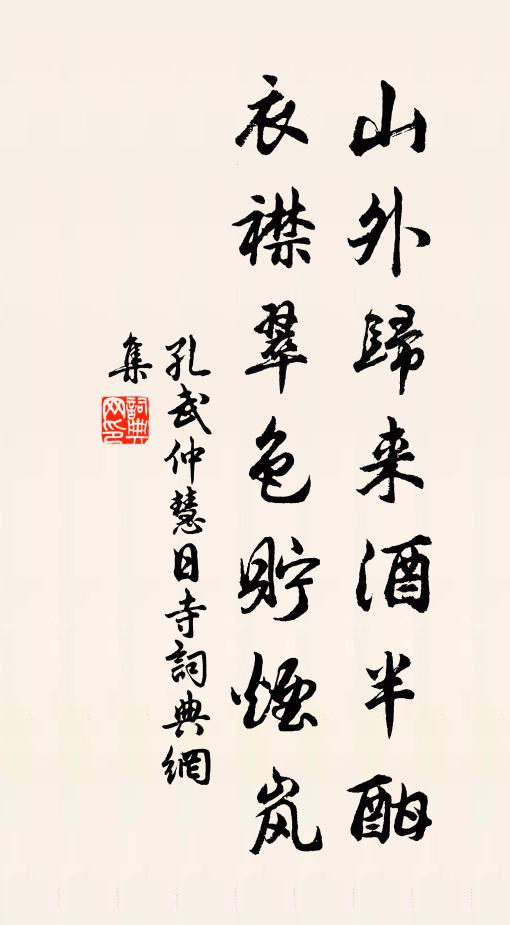 山外歸来酒半酣
衣襟翠色貯煙岚
孔武仲慧日寺詞典網
集
詞典网印